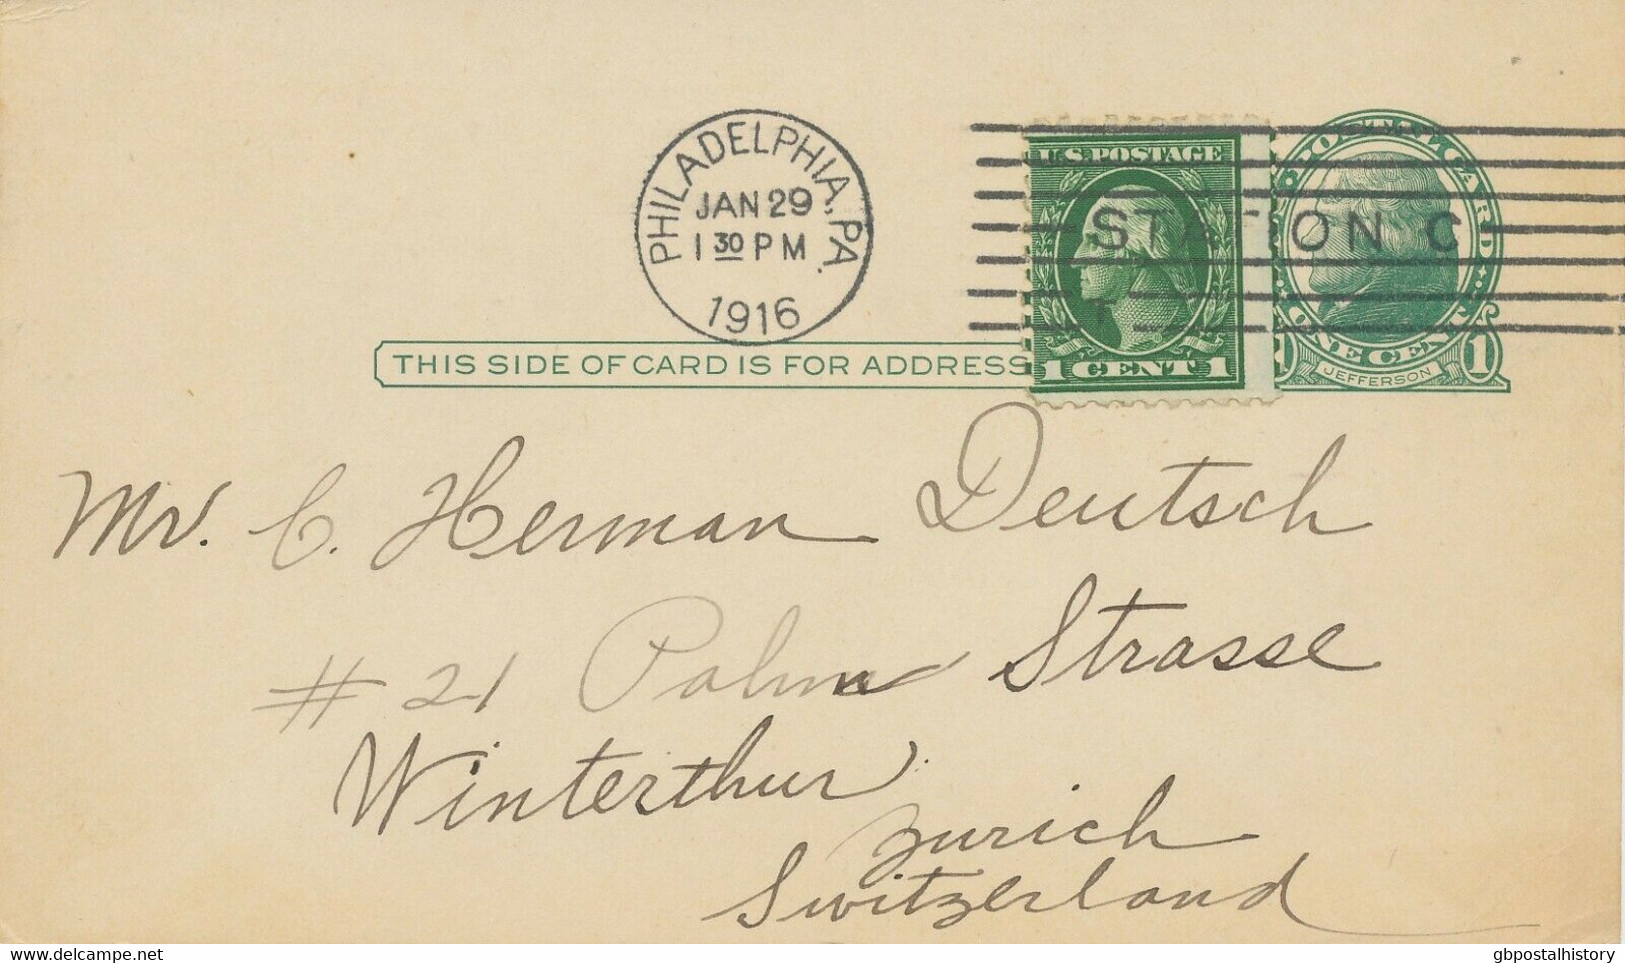 PHILADELPHIA, PA.
JAN 29
1 30 PM
1916
STATION C
U.S. POSTAGE
1 CENT 1
POSTAL CARD
JEFFERSON
ONE CENT
1
THIS SIDE OF CARD IS FOR ADDRESS
Mr. C. Herman Deutsch
# 21 Palm Strasse
Winterthur
Zurich
Switzerland
delcampe.net
gbpostalhistory